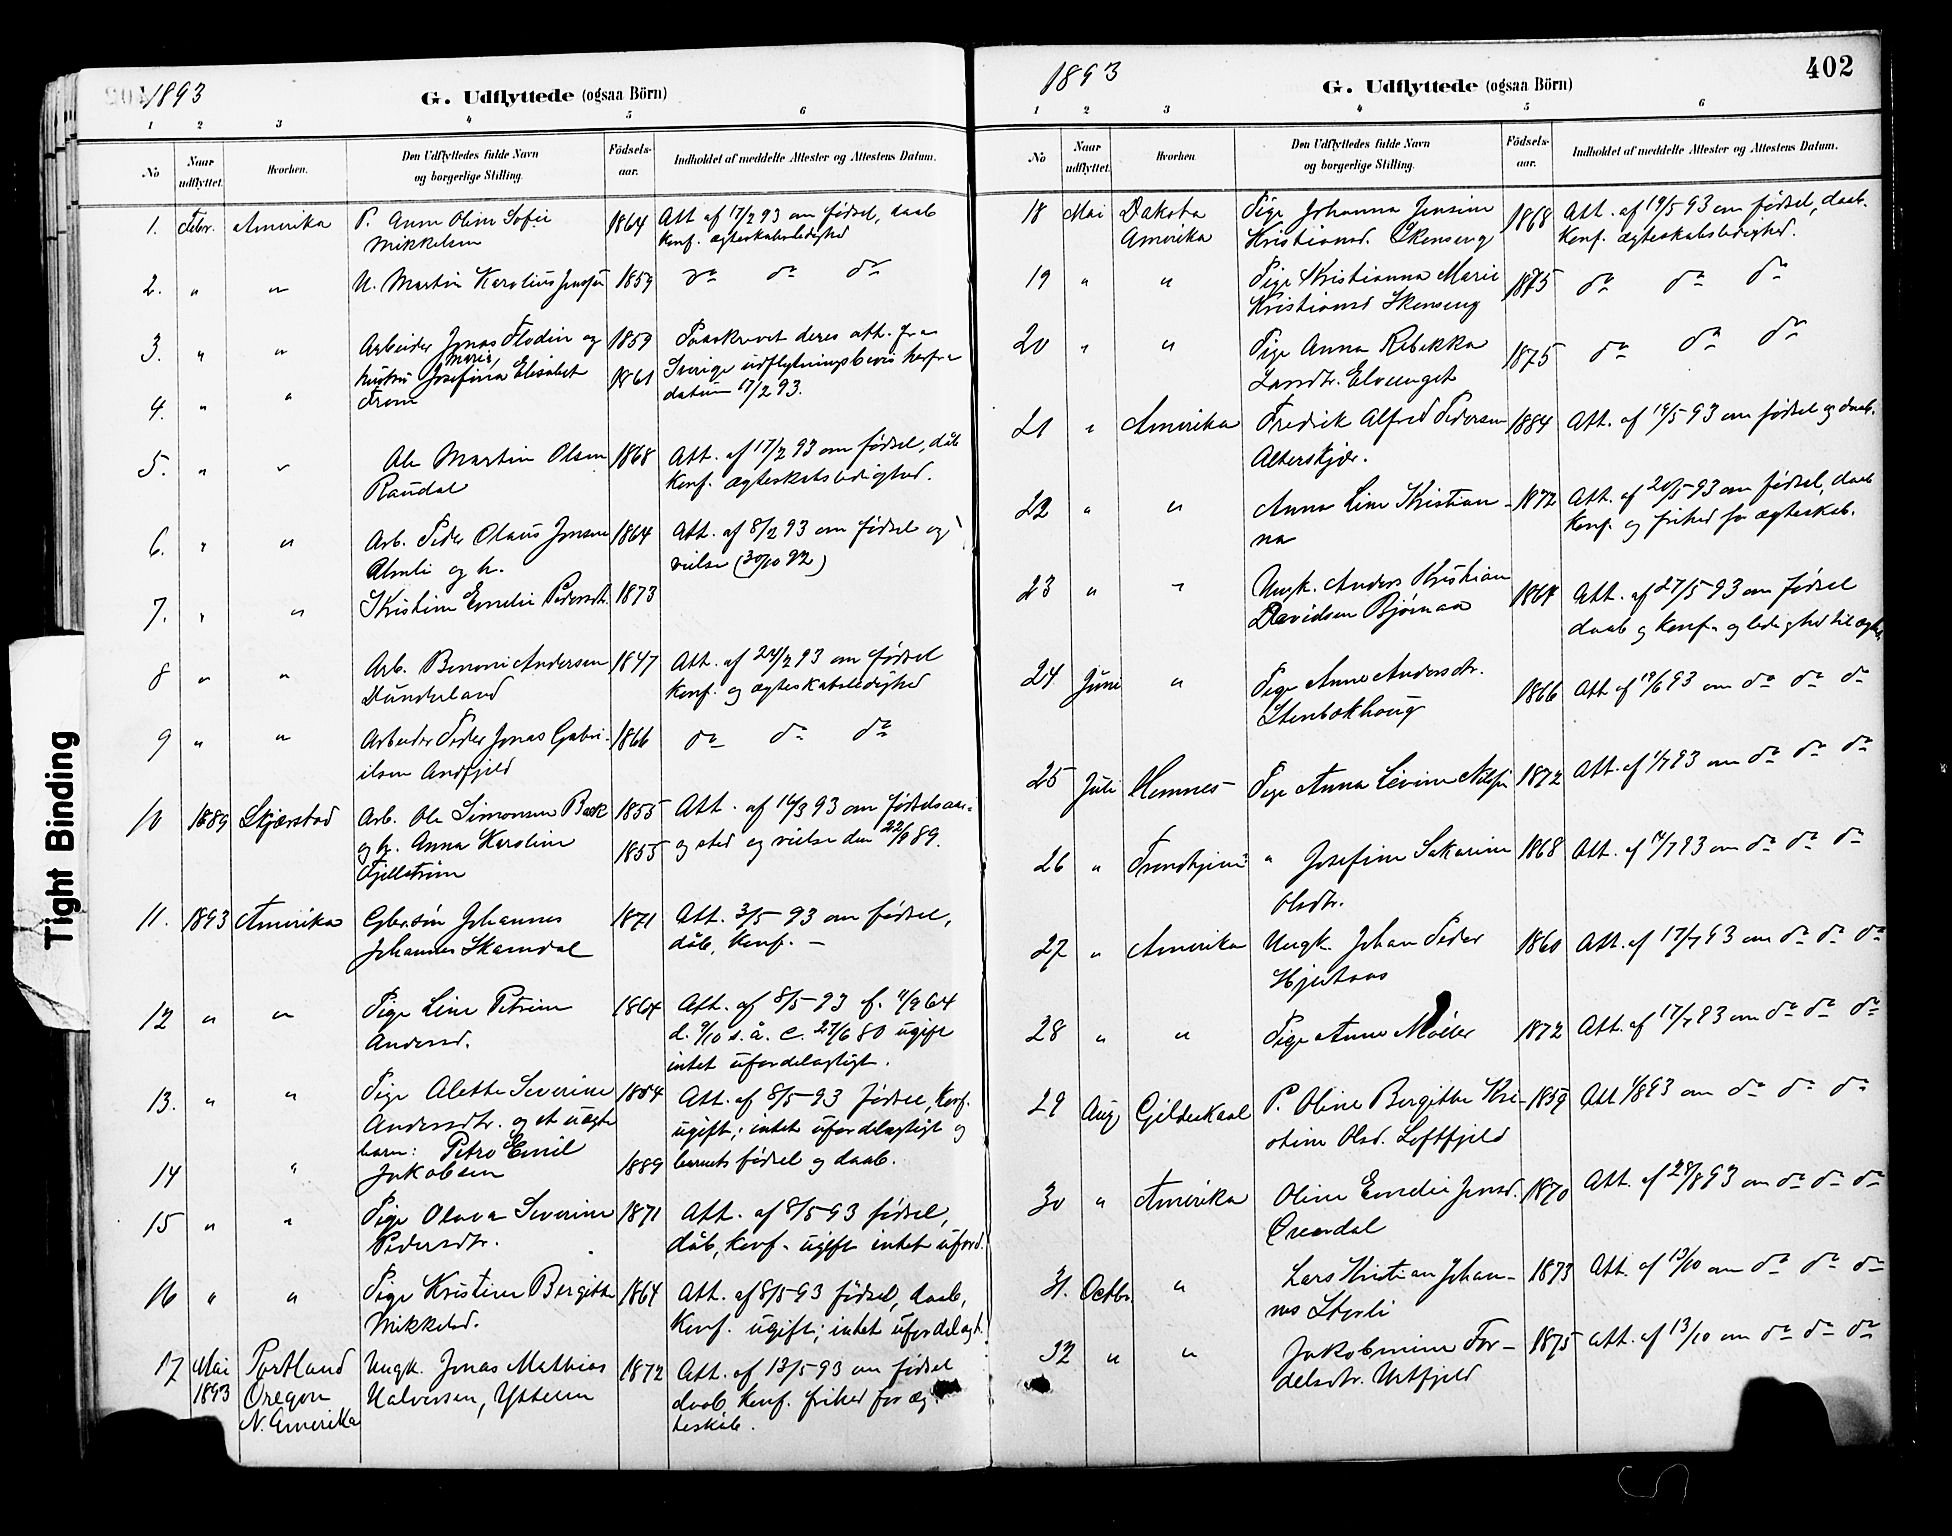 1893
G. Udflyttede (ogsaa Börn)
1 2 3 4 5 6
No Naar udflyttet. Hvorhen. Den Udflyttedes fulde Navn og borgerlige Stilling. Fødsels-aar. Indholdet af meddelte Attester og Attestens Datum.
1. Febr. Amerika P. Anne Oline Sofie 1864 Att af 17/2 93 om fødsel, daab
Mikkelsen Konf. ægteskabsledighed
2. " " U. Martin Karolius 1859 do do do
3. " " Arbeider Jonas Flodin og 1859 Paaskrevet deres att. fra
Maria,
hustru Josefina Elisabet 1861 Sverige udflytningsbevis herfra
4. " " From datum 17/2 93.
5. " " Ole Martin Olsen 1868 Att. af 17/2 93 om fødsel, dåb
Raudal Konf. ægteskabsledighed.
6. " " Arb. Peder Olaus Jensen 1864 Att. af 8/2 93 om fødsel og
Almli og h. vielse (30/10 92)
7. " " Kristine Emelie Pedersdtr. 1873
8 " " Arb. Benoni Andersen 1847 Att. af 24/2 93 om fødsel
Dunderland Konf. og ægteskabsledighed
9 " " Arbeider Peder Jonas Gabri- 1866 do do do
elsen Andfjeld
10 1889 Skjærstad Arb. Ole Simonsen Bæk 1855 Att. af 16/3 93 om fødselsaar-
og h. Anna Karoline 1855 og sted og vielse den 22/9 89.
Fjellström
11. 1893 Amerika Gbr.søn Johannes 1871 Att. 3/5 93 om fødsel,
Johannes. Skamdal dåb, Konf. –
12 " " Pige Line Petrine 1864 Att. af 8/5 93 f. 4/9 64
Andersd. d. 9/10 s. å. c. 27/6 80 ugift
intet ufordelagtigt.
13. " " Pige Alette Severine 1864 Att. af 8/5 93 fødsel, Konf.
Andersdtr. og et uægte ugift; intet ufordelagtigt og
barn: Petro Emil
14 " Jakobsen 1889 barnets fødsel og daab.
15 " " Pige Olava Severine 1871 Att. af 8/5 93 fødsel,
Pedersdtr. dåb, Konf. ugift intet uford.
16 " " Pige Kristine Bergitte 1864 Att. af 8/5 93 fødsel, daab,
Mikkelsd. Konf. ugift; intet ufordelagt.
17 Mai Portland Ungk. Jonas Mathias 1872 Att. af 13/5 93 om fødsel
1893 Oregon Halvorsen, Ytteren daab, Konf. frihed for æg-
N. Amerika teskab.
1893
402
G. Udflyttede (ogsaa Börn)
1 2 3 4 5 6
No Naar udflyttet. Hvorhen. Den Udflyttedes fulde Navn og borgerlige Stilling. Fødsels-aar. Indholdet af meddelte Attester og Attestens Datum.
18 Mai Dakota Pige Johanna Jensine 1868 Att. af 19/5 93 om fødsel, daab.
Amerika Kristiansd. Skenseng Konf. ægteskabsledighed.
19 " " Pige Kristianna Marie 1875 do do do
Kristiansd Skenseng
20 " " Pige Anna Rebekka 1875 do do do
Larsdtr. Elvenget
21 " Amerika Fredrik Alfred Pedersen 1884 Att. af 19/5 93 om fødsel og daab.
Alterskjær.
22 " " Anna Line Kristian- 1872 Att. af 20/5 93 om fødsel, daab
na Konf. og frihed for ægteskab.
23 " " Ungk. Anders Kristian 1864 Att. af 27/5 93 om fødsel
Davidsen Bjørnaa daab og Konf. og ledighed til ægt.
24 Juni " Pige Anne Andersdtr. 1866 Att af 19/6 93 om do do do
Stenbokhoug
25 Juli Hemnes Pige Anna Levine 1872 Att. af 1/7 93 om do do do
26 " Trondhjem " Josefine Sakarine 1868 Att. af 14/7 93 om do do do
Olsdtr.
27 " Amerika Ungk. Johan Peder 1860 Att. af 17/7 93 om do do do
Hjertaas
28 " " Pige Anne Møller 1872 Att. af 17/7 93 om do do do
29 Aug Gildeskaal P. Oline Bergitte Kri- 1859 Att 1/8 93 om do do do
stine Olsd. Loftfjeld
30 " Amerika Oline Emelie Jensd. 1870 Att. af 28/8 93 om do do do
31. Octbr. " Lars Kristian Johan- 1873 Att. af 13/10 om do do do
nes Storli
32 " " Jakobmine For- 1875 Att. af 13/10 om do do do
delsdtr. Urtfjeld
Tight Binding